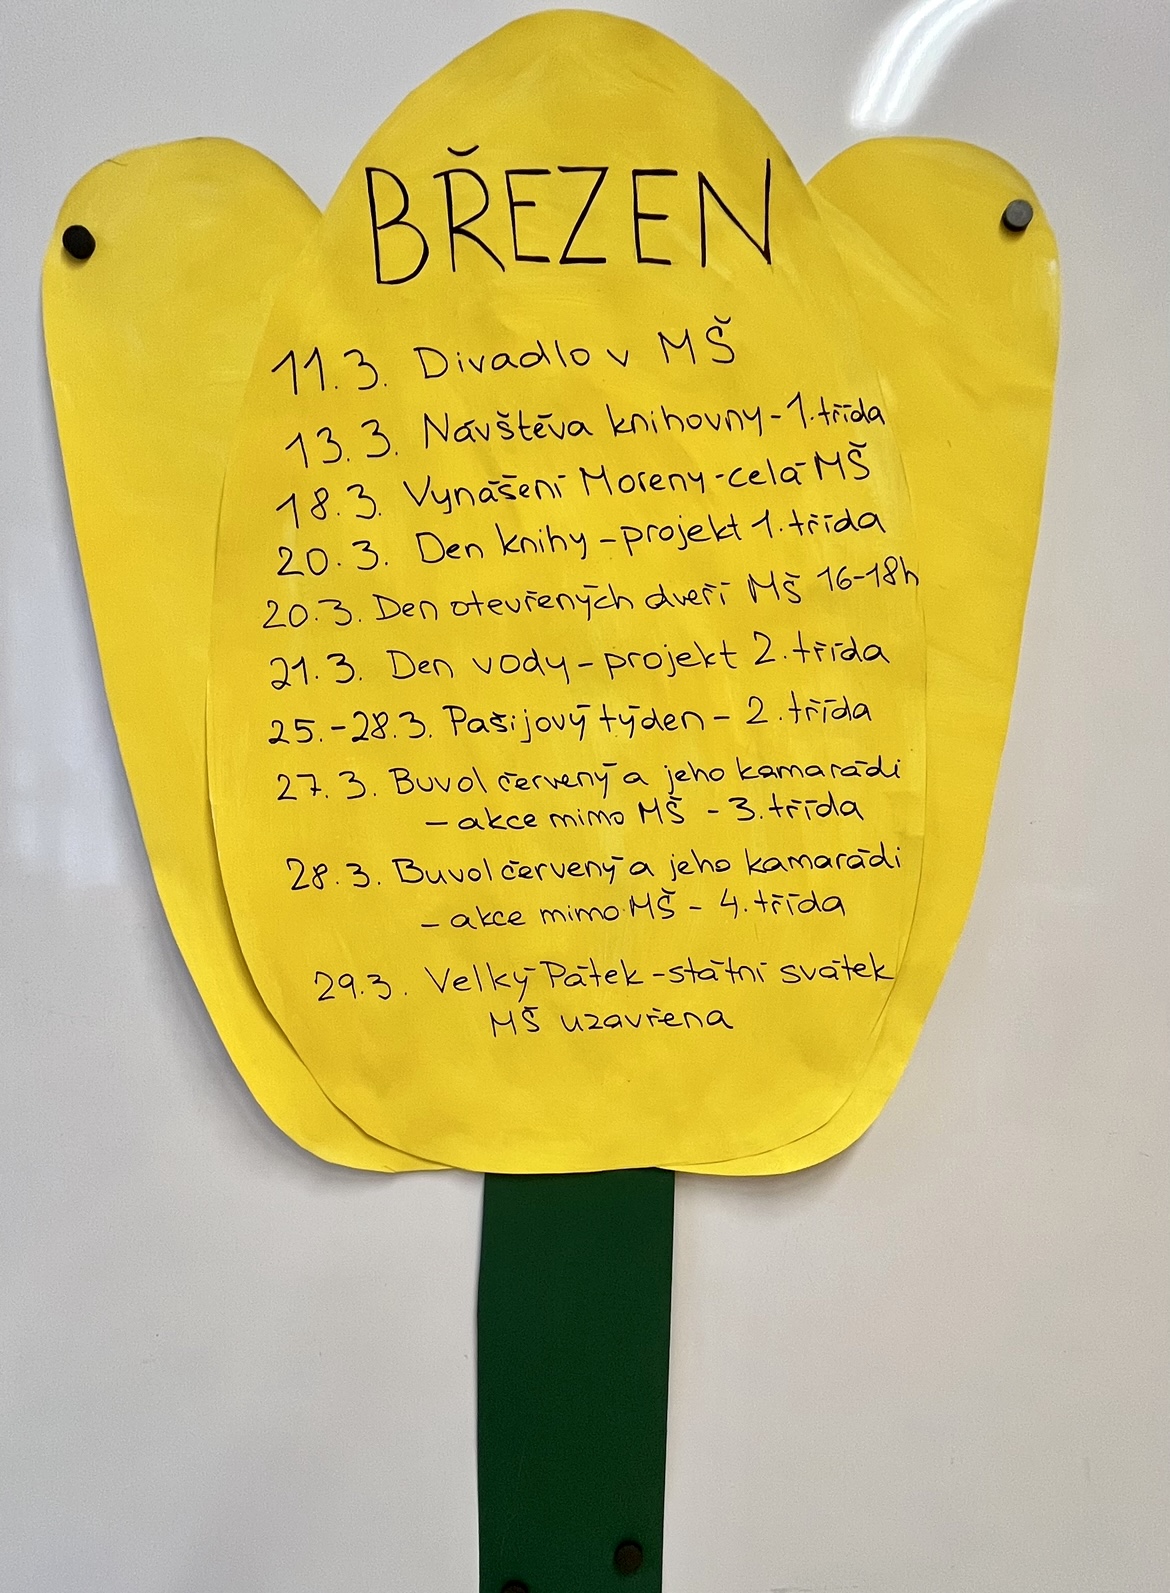 BŘEZEN
11.3. Divadlo v MŠ
13.3. Návštěva knihovny - 1. třída
18.3. Vynášení Moreny - celá MŠ
20.3. Den knihy - projekt 1. třída
20.3. Den otevřených dveří MŠ 16-18h
21.3. Den vody - projekt 2. třída
25.-28.3. Pašijový týden - 2. třída
27.3. Buvol červený a jeho kamarádi
- akce mimo MŠ - 3. třída
28.3. Buvol červený a jeho kamarádi
- akce mimo MŠ - 4. třída
29.3. Velký Pátek - státní svátek
MŠ uzavřena